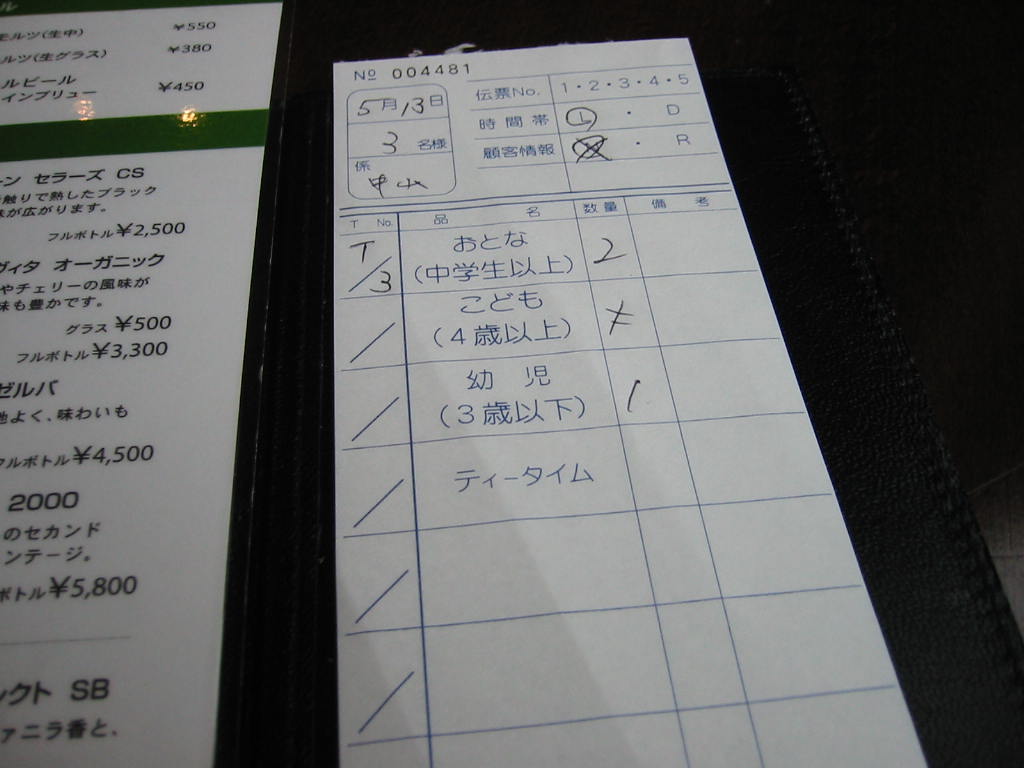 ル
モルツ(生中) ¥550
ルツ(生グラス) ¥380
ルビール
インブリュー ¥450
ーン セラーズ CS
触りで熟したブラック
が広がります。
フルボトル¥2,500
ヴィタ オーガニック
やチェリーの風味が
味も豊かです。
グラス ¥500
フルボトル¥3,300
ゼルバ
地よく、味わいも
フルボトル¥4,500
2000
のセカンド
ンテージ。
ボトル¥5,800
レクト SB
ァニラ香と、
№ 004481
5月13日
3名様
係
中山
伝票No. 1・2・3・4・5
時間帯 L・D
顧客情報 ・R
T No. 品名 数量 備考
T/3 おとな
(中学生以上) 2
/ こども
(4歳以上)
/ 幼児
(3歳以下) 1
/ ティータイム
/
/